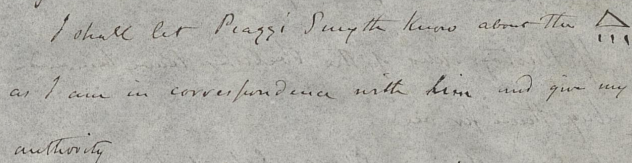 I shall let Piazzi Smyth know about the
as I am in correspondence with him and give my
authority